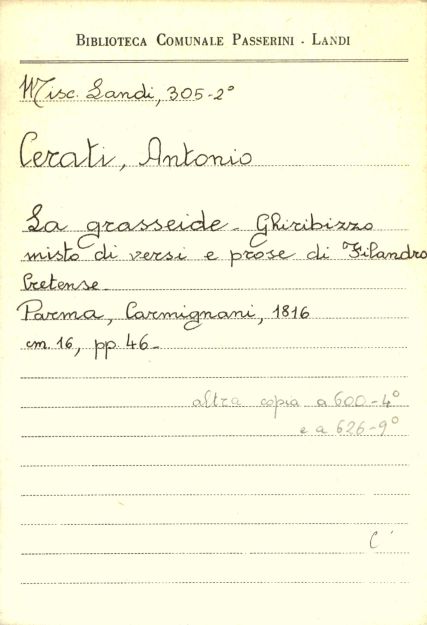 BIBLIOTECA COMUNALE PASSERINI - LANDI
Misc. Landi, 305-2°
Cerati, Antonio
La grasseide - Ghiribizzo
misto di versi e prose di Filandro
Cretense -
Parma, Carmignani, 1816
cm. 16, pp. 46 -
altra copia a 600-4°
e a 626-9°
C